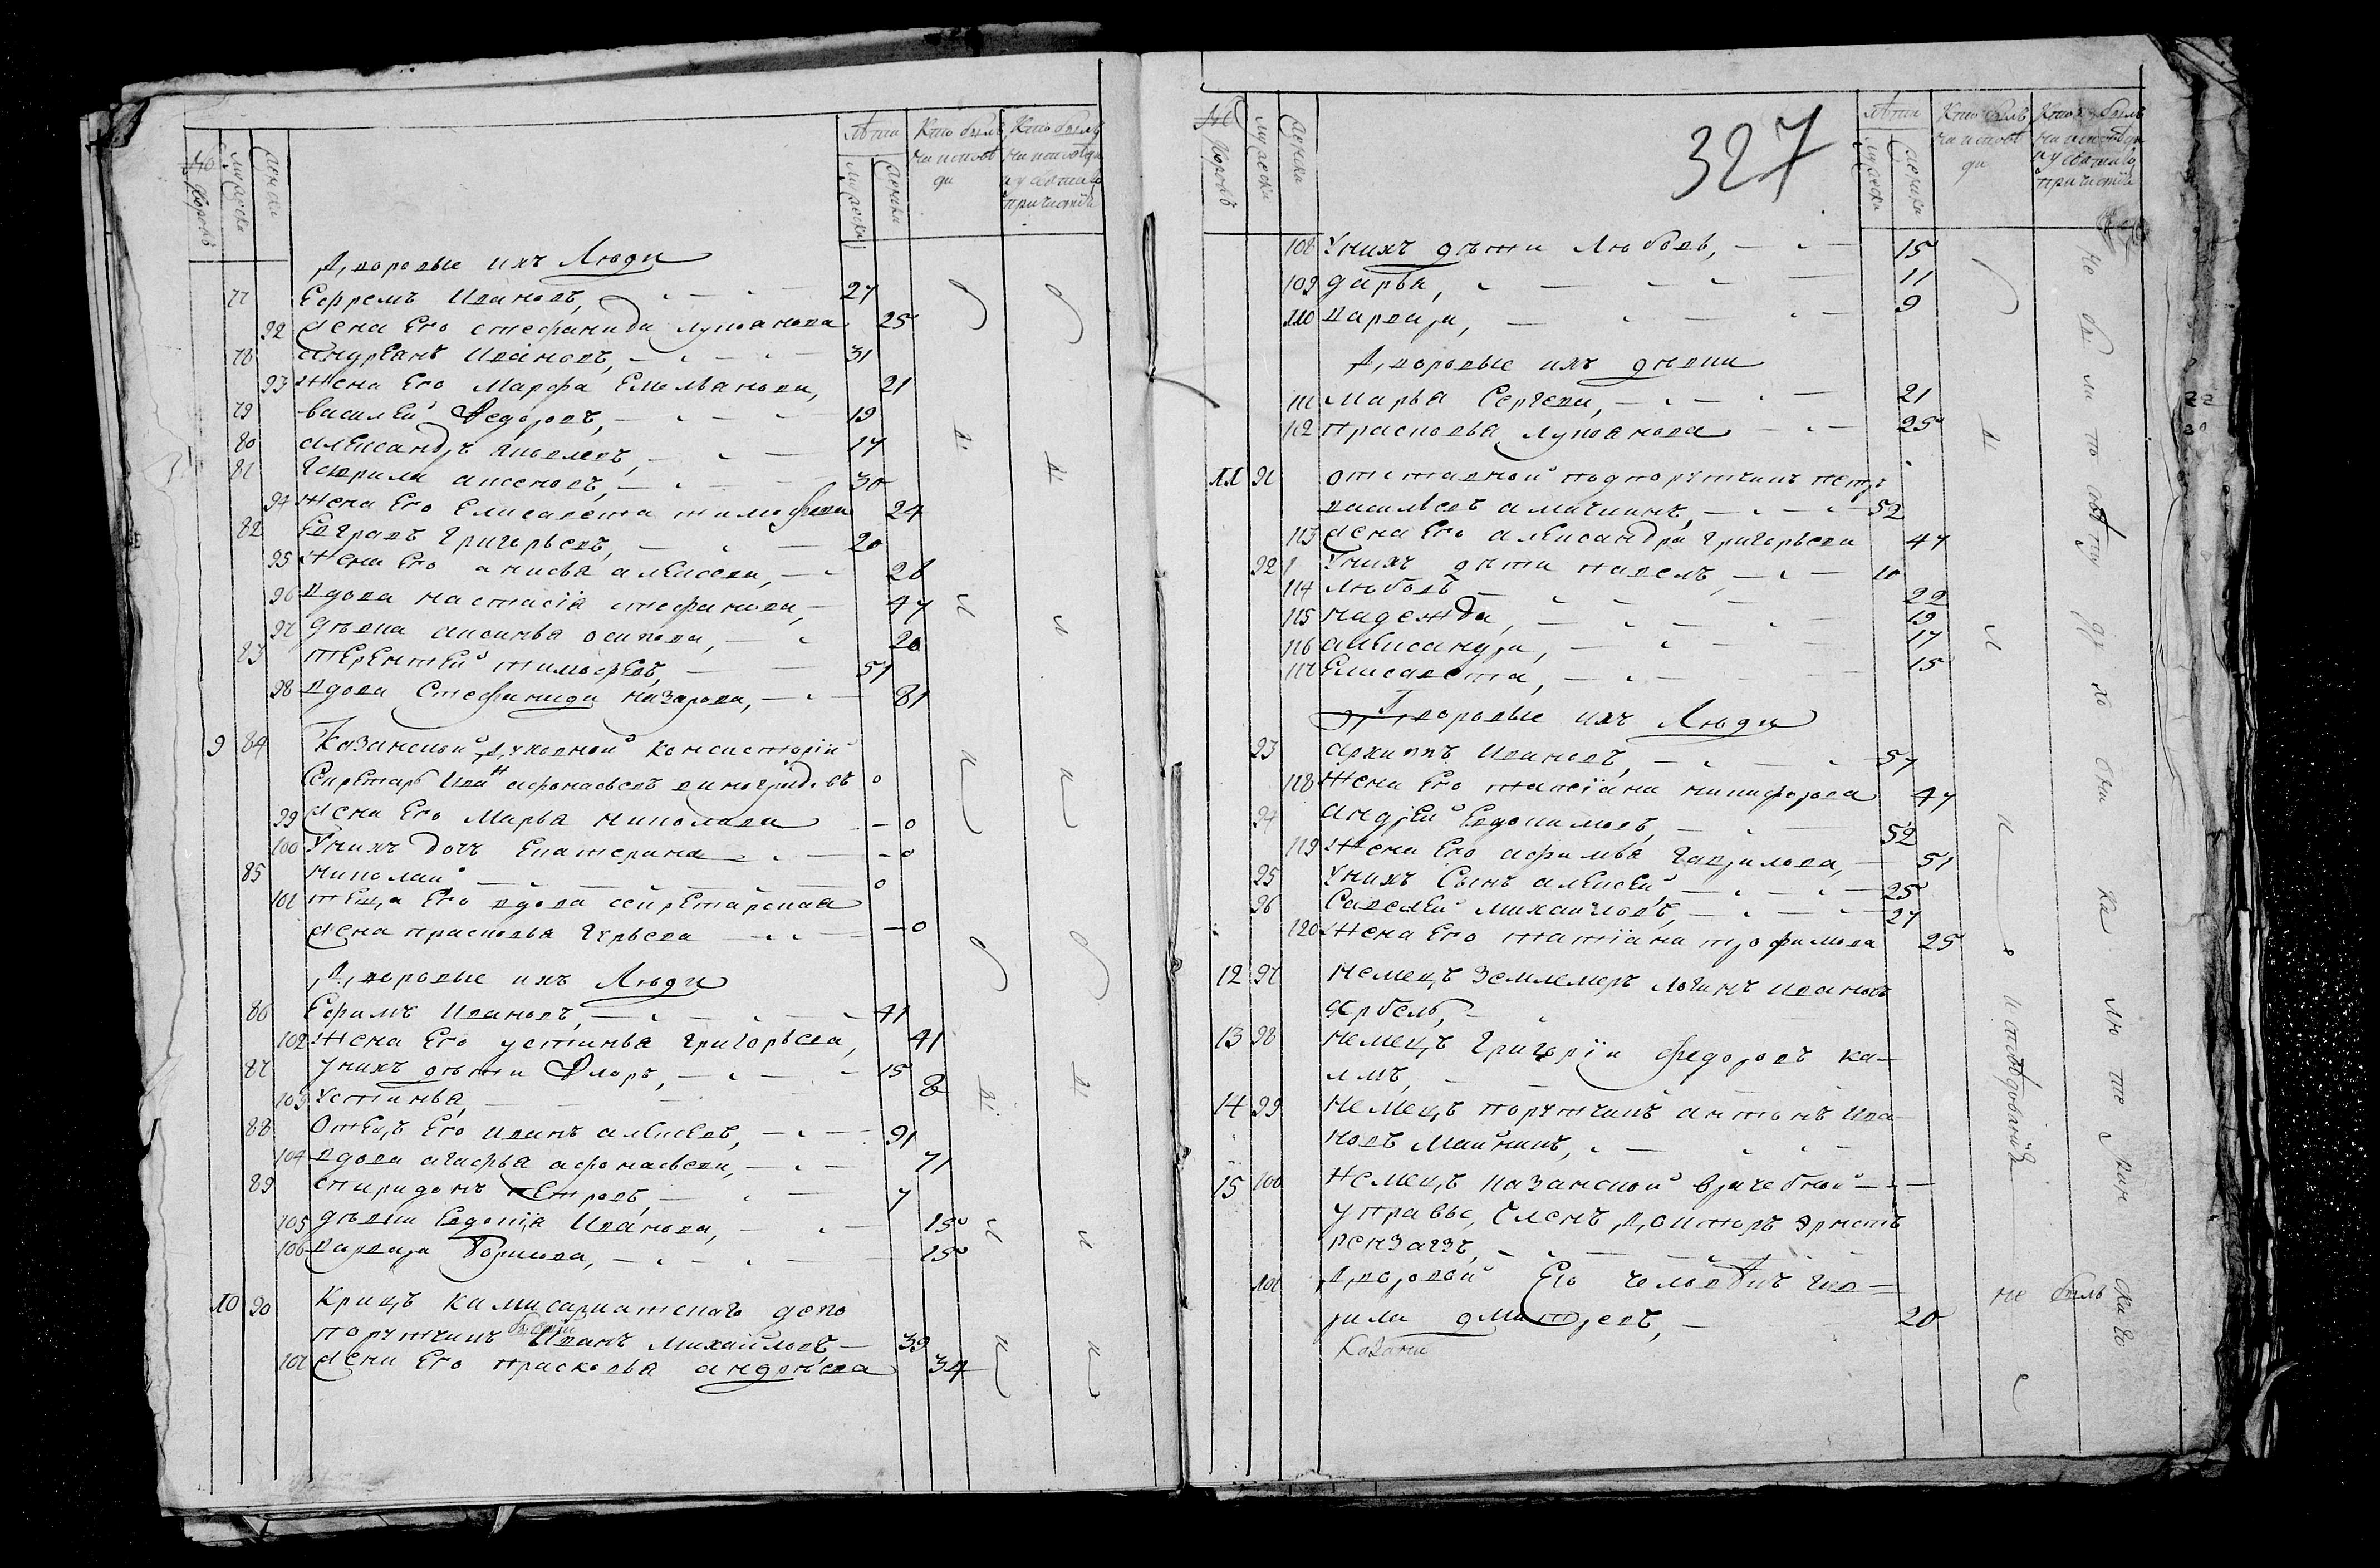 № дворовъ
мужеска
женска
Лѣта
мужеска
женска
Кто былъ на исповѣди
Кто былъ на исповѣди и у святаго причастїя
Дворовые ихъ Люди
77 Ефремъ Ивановъ, 27
92 Жена Его стефанида лукоанова 25
78 андреанъ Ивановъ, 31
93 Жена Его Марфа Емельанова, 21
79 василей Федоровъ, 19
80 александръ яковлевъ, 17
81 Гаврила аксеновъ, 30
94 Жена Его Елисавета тимофеева 24
82 Евграфъ Григорьевъ, 20
95 Жена Его анисья алексеева, 26
96 вдова настасїа стефанова, 47
97 дѣвка аксинья осипова, 20
83 терентей тимофеевъ, 51
98 вдова Стефанида назарова, 81
9 84 Казанской Духовной консисторїи
Секретарь Иванъ афонасьевъ виноградовъ 0
99 Жена Его Марья николаева 0
100 Унихъ дочь Екатерина 0
85 николай 0
101 теща Его вдова секретарская
жена прасковья Гурьева 0
Дворовые ихъ Люди
86 Ефимъ Ивановъ, 41
102 Жена Его устинья григорьева, 41
87 унихъ дѣти Флоръ, 15
103 Устинья, 8
88 Отецъ Его иванъ алексеевъ, 91
104 вдова агафья афонасьева, 71
89 спиридонъ петровъ, 7
105 дѣвки Евдокїа Иванова, 15
106 варвара Борисова, 15
10 90 Кригсъ камисариатскаго депо
порутчикъ Иванъ Михайловъ 39
107 Жена Его прасковья андреева 34
327
№ дворовъ
мужеска
женска
Лѣта
мужеска
женска
Кто былъ на исповѣди
Кто былъ на исповѣди и у святаго причастїя
108 Унихъ дѣти Любовь, 15
109 дарья, 11
110 варвара, 9
Дворовые ихъ дѣвки
111 Марья Сергеева, 21
112 прасковья лукоанова 25
11 91 отставной подпорутчикъ петръ
васильевъ аматкинъ, 52
113 Жена Его александра григорьева 47
92 Унихъ дѣти павелъ, 10
114 Любовь 22
115 надежда, 19
116 александра, 17
117 Елисавета, 15
Дворовые ихъ Люди
93 архипъ Ивановъ, 57
118 Жена Его татїана никифорова 47
94 андрей Евдокимовъ, 52
119 Жена Его афимья гаврилова, 51
95 Унихъ Сынъ алексей, 25
96 Савелей михайловъ, 27
120 Жена Его татїана трофимова 25
12 97 немецъ землемеръ логинъ ивановъ
13 98 немецъ григорїи федоровъ ка-
лмъ,
14 99 немецъ порутчикъ антонъ ива-
новъ
15 100 немецъ казанской врачебной
управы, Членъ Докторъ Эрнстъ
101 Дворовой Его человѣкъ гав-
рила дмитревъ, 20
не былъ